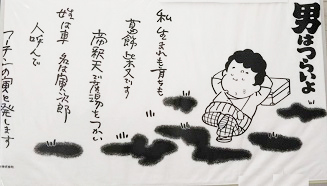 男はつらいよ
私 生まれも育ちも
葛飾柴又です
帝釈天で産湯をつかい
姓は車 名は寅次郎
人呼んで
フーテンの寅と発します